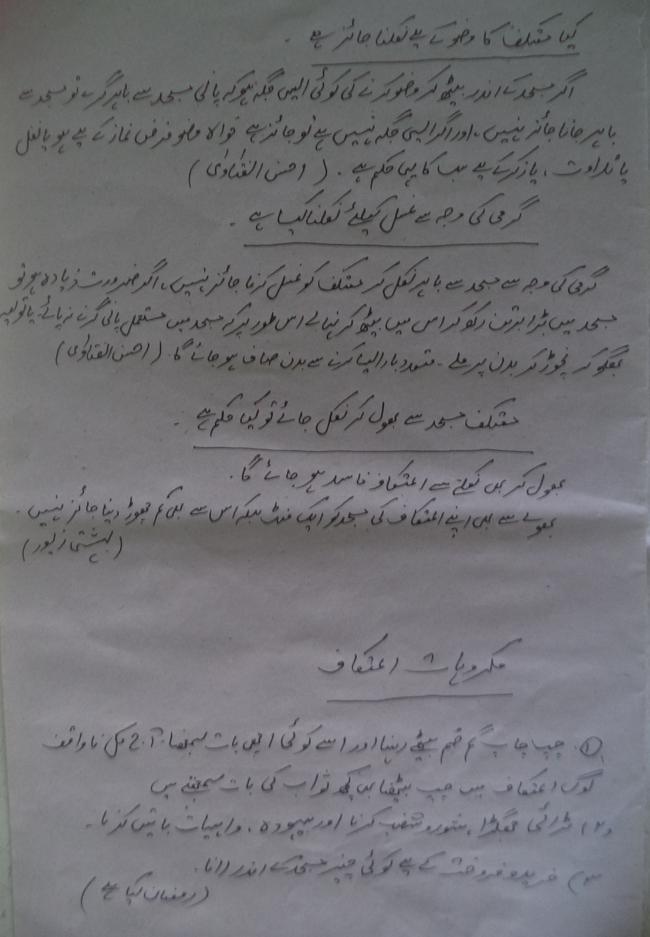 کیا معتکف کا وضو کے لیے نکلنا جائز ہے ۔
اگر مسجد کے اندر بیٹھ کر وضو کرنے کی کوئی ایسی جگہ ہو کہ پانی مسجد سے باہر گرے تو مسجد سے
باہر جانا جائز نہیں ، اور اگر ایسی جگہ نہیں ہے تو جائز ہے خواہ وضو فرض نماز کے لیے ہو یا نفل
یا تلاوت ، یا ذکر کے لیے سب کا یہی حکم ہے ۔ ( احسن الفتاویٰ )
گرمی کی وجہ سے غسل کیلئے نکلنا کیسا ہے ۔
گرمی کی وجہ سے مسجد سے باہر نکل کر معتکف کو غسل کرنا جائز نہیں ، اگر ضرورت زیادہ ہو تو
مسجد میں بڑا برتن رکھ کر اس میں بیٹھ کر نہا لے اس طور پر کہ مسجد میں مستعمل پانی گرنے نہ پائے یا تولیہ
بھگو کر نچوڑ کر بدن پر ملے ۔ متعدد بار ایسا کرنے سے بدن صاف ہو جائے گا ۔ ( احسن الفتاویٰ )
معتکف مسجد سے بھول کر نکل جائے تو کیا حکم ہے ۔
بھول کر بھی نکلنے سے اعتکاف فاسد ہو جائے گا ۔
بھولے سے بھی اپنے اعتکاف کی مسجد کو ایک منٹ بلکہ اس سے بھی کم چھوڑ دینا جائز نہیں ۔
( بہشتی زیور )
مکروہات اعتکاف
① ۔ چپ چاپ گم صم بیٹھے رہنا اور اسے کوئی اچھی بات سمجھنا ۔ آج کل ناواقف
لوگ اعتکاف میں چپ بیٹھنا ہی کچھ ثواب کی بات سمجھتے ہیں
(۲) لڑائی جھگڑا ، شور و شغب کرنا اور بیہودہ ، واہیات باتیں کرنا ۔
۳) خرید و فروخت کے لیے کوئی چیز مسجد کے اندر لانا ۔
( رمضان کیا ہے )